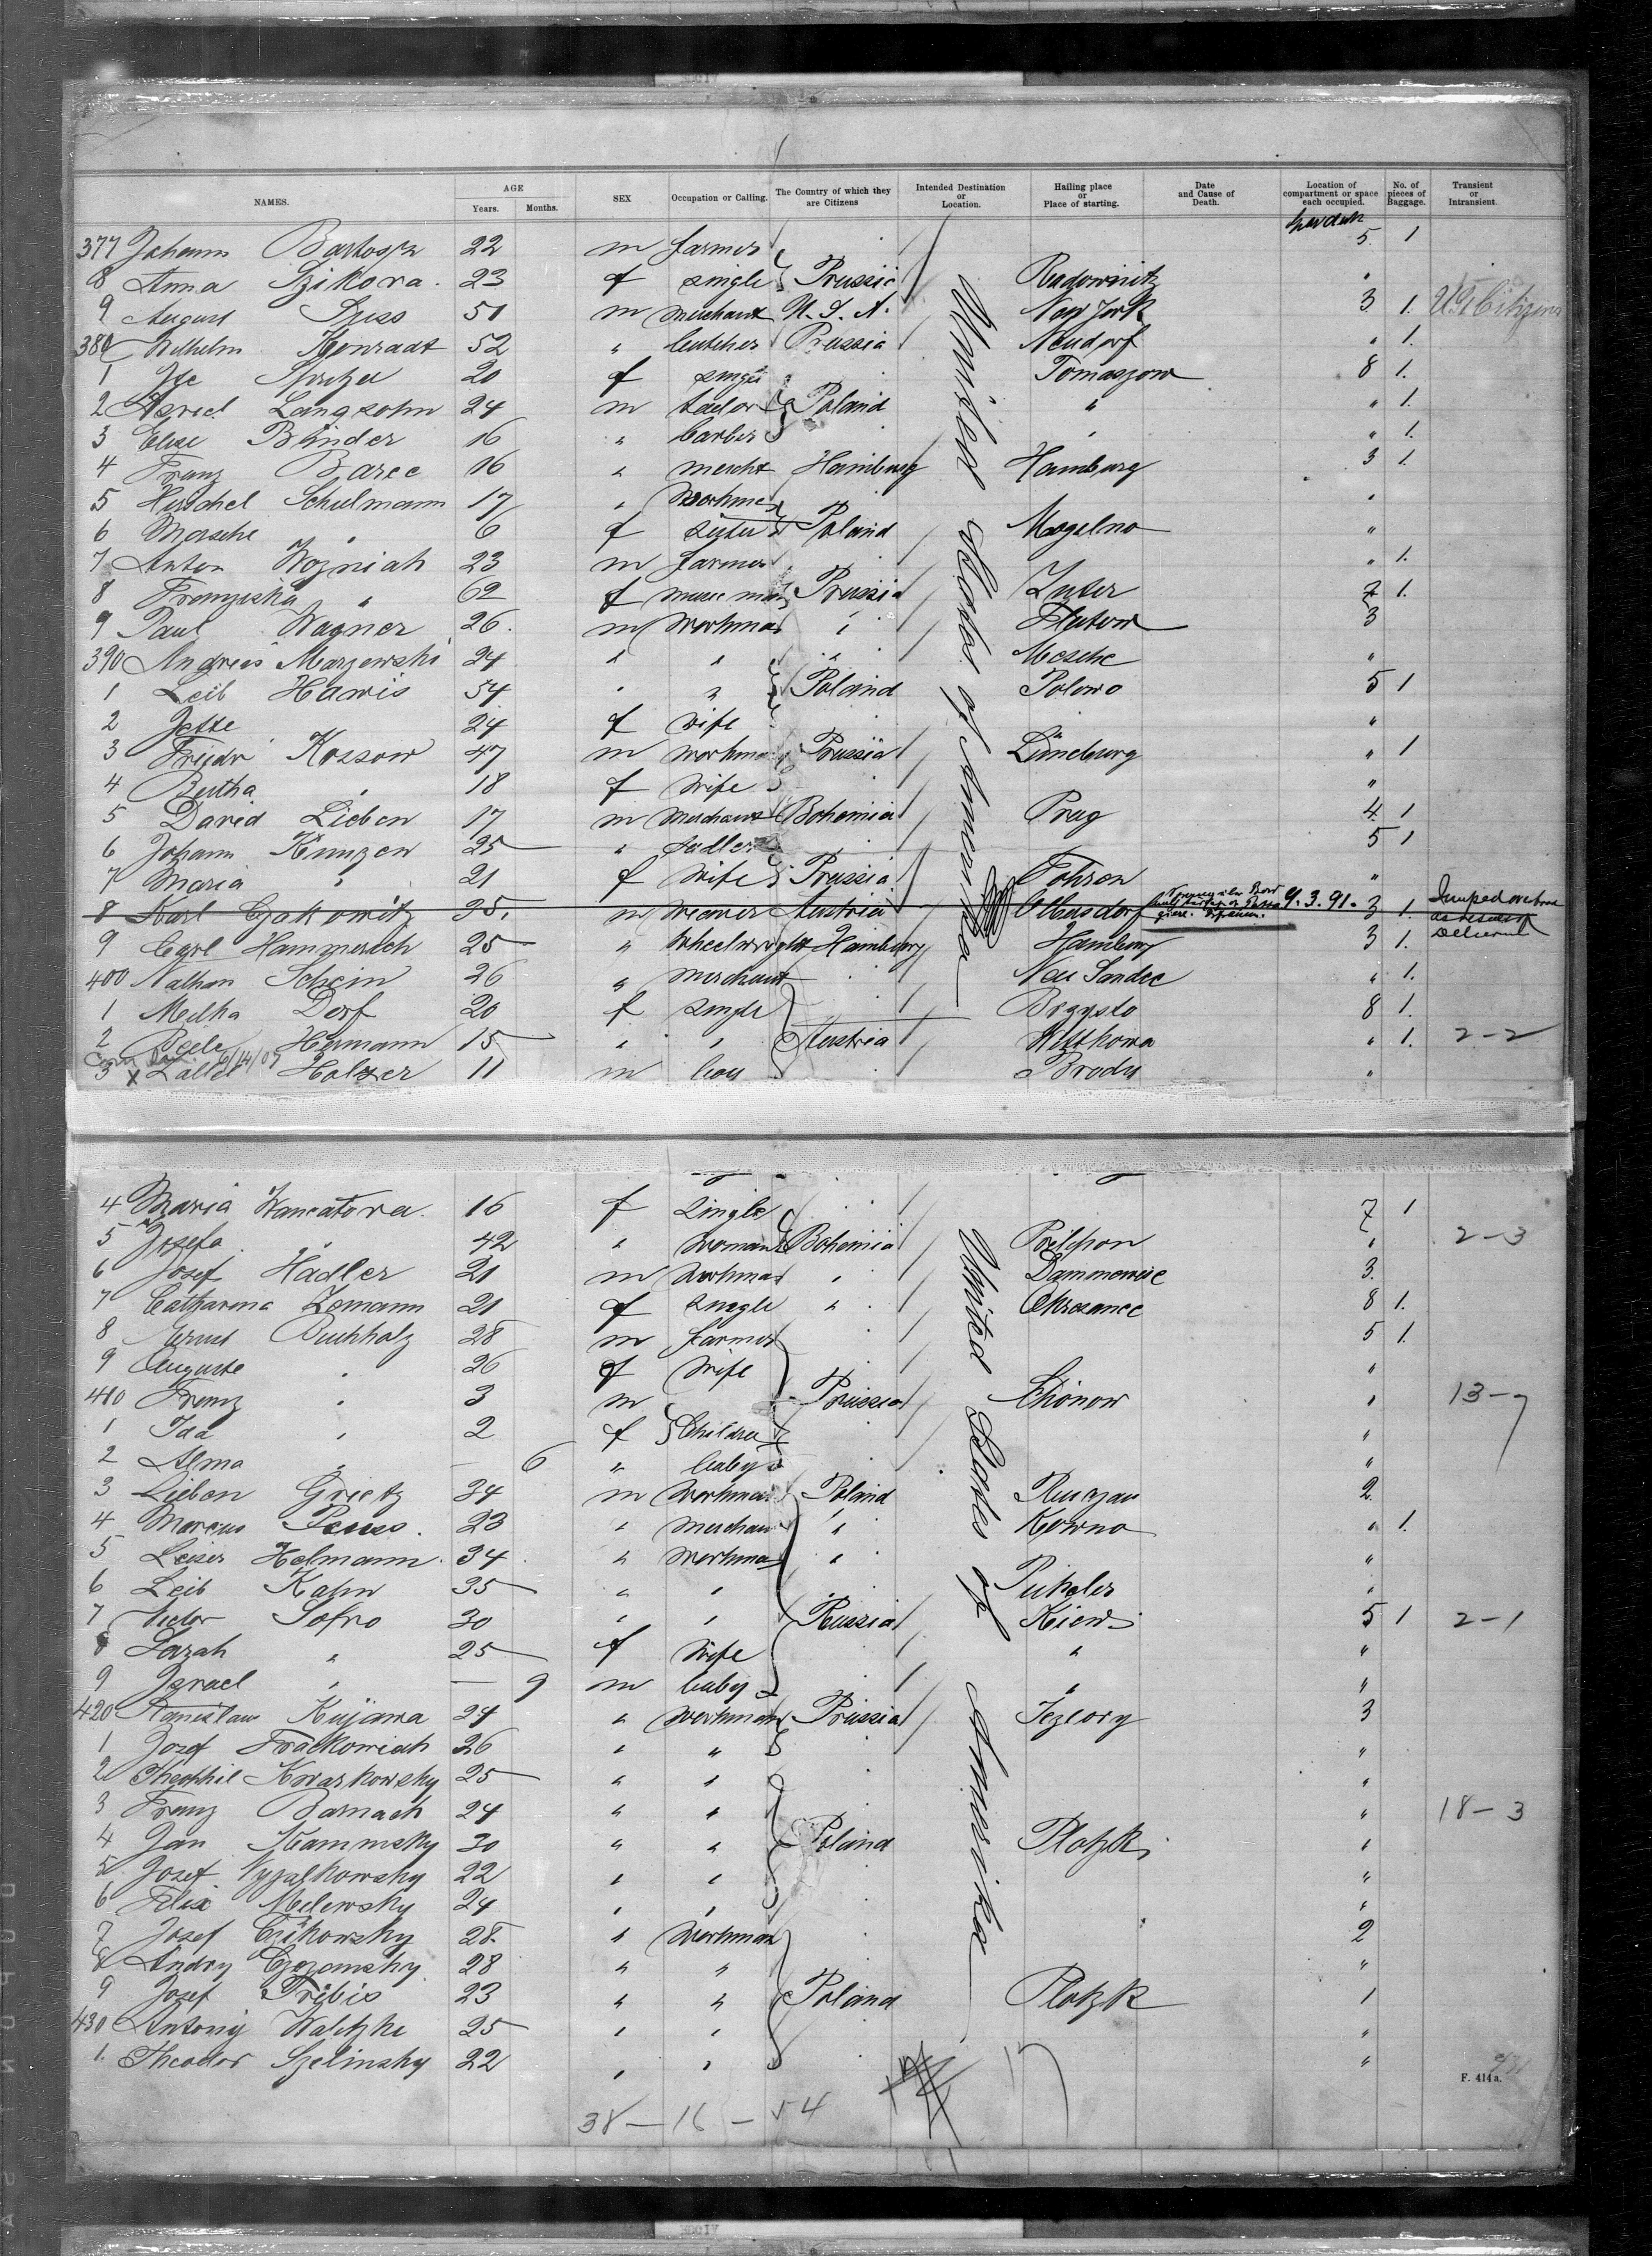 NAMES. AGE Years. Months. SEX Occupation or Calling. The Country of which they are Citizens Intended Destination or Location. Hailing place or Place of starting. Date and Cause of Death. Location of compartment or space each occupied. No. of pieces of Baggage. Transient or Intransient.
377 Johann Bartosz 22 m farmer 5 1
8 Anna Szikora 23 f single Prussia Radownitz "
9 August Suss 51 m merchant U. S. A. New York 3 1. US Citizen
380 Wilhelm Konradt 52 " butcher Prussia Neudorf " 1.
1 Spritzer 20 f single Tomaszow 8 1.
2 Langsohn 24 m tailor Poland " " 1.
3 Elise Blinder 16 " barber " " 1.
4 Franz Baree 16 " mercht Hamburg Hamburg 3 1.
5 Hirschel Schulmann 17 " Workman "
6 Mosche " 6 f sister Poland Mogelno "
7 Anton Wozniak 23 m farmer " 1.
8 Franziska " 62 f Prussia Znter 7 1.
9 Paul Wagner 26. m Workman " Flatow 3
390 Andreas Marzewski 24 " " " Mesche "
1 Leib Hawis 54 " " Poland Polowo 5 1
2 Jette 24 f wife "
3 Friedr Kossow 47 m workman Prussia Lüneburg " 1
4 Bertha " 18 f Wife "
5 David Lieben 17 m Merchant Bohemia Prag 4 1
6 Johann Künzen 25 " sadler 5 1
7 Maria " 21 f Wife Prussia Fohren "
8 Karl Czakowitz 25. m weaver Austria Olbersdorf 9.3.91. 3 1. Jumped overboard
9 Carl Hammerich 25 " Wheelwright Hamburg Hamburg 3 1.
400 Nathan Schein 26 " Merchant Neu Sandec " 1.
1 Melka Dorf 20 f single Brzysto 8 1.
2 Hermann 15 " " Austria Wittkowa " 1. 2-2
6/14/09
3 x Holzer 11 m boy Brody "
4 Maria Wancatora. 16 f Single 7 1
5 Josefa " 42 " woman Bohemia " 2-3
6 Josef Hadler 21 m workman " 3.
7 Catharina Zemann 21 f single " 8 1.
8 Ernst Buchholz 28 m farmer 5 1.
9 Auguste " 26 f Wife "
410 Franz " 3 m Prussia Schönow " 13-7
1 Ida " 2 f Children "
2 Alma " — 6 " baby "
3 Lieben Grietz 34 m Workman Poland 2
4 Marcus 23 " Merchant " Kowno " 1.
5 Leiser Helmann. 34 " Workman " "
6 Leib Kahn 35 " " "
7 Victor Sofro 30 " " Russia Kiew 5 1 2-1
8 Sarah " 25 f Wife " "
9 Israel " — 9 m baby " "
420 Stanislaw Kujawa 24 " workman Prussia Jeziory 3
1 Josef Frackowiak 26 " " "
2 Theophil Kwaskowsky 25 " " "
3 Franz Barnach 24 " " " 18-3
4 Jan Kaminsky 30 " " Poland Plotzk "
5 Josef 22 " " "
6 Felix Melewsky 24 " " "
7 Josef Czikowsky 28 " Workman 2
8 Andry 28 " " "
9 Josef Tribis 23 " " Poland Plotzk 1
430 Antony Walitzke 25 " " "
1. Theodor Szelinsky 22 " " "
United States of Amerika
United States of Amerika
F. 414 a.
38 — 16 — 54